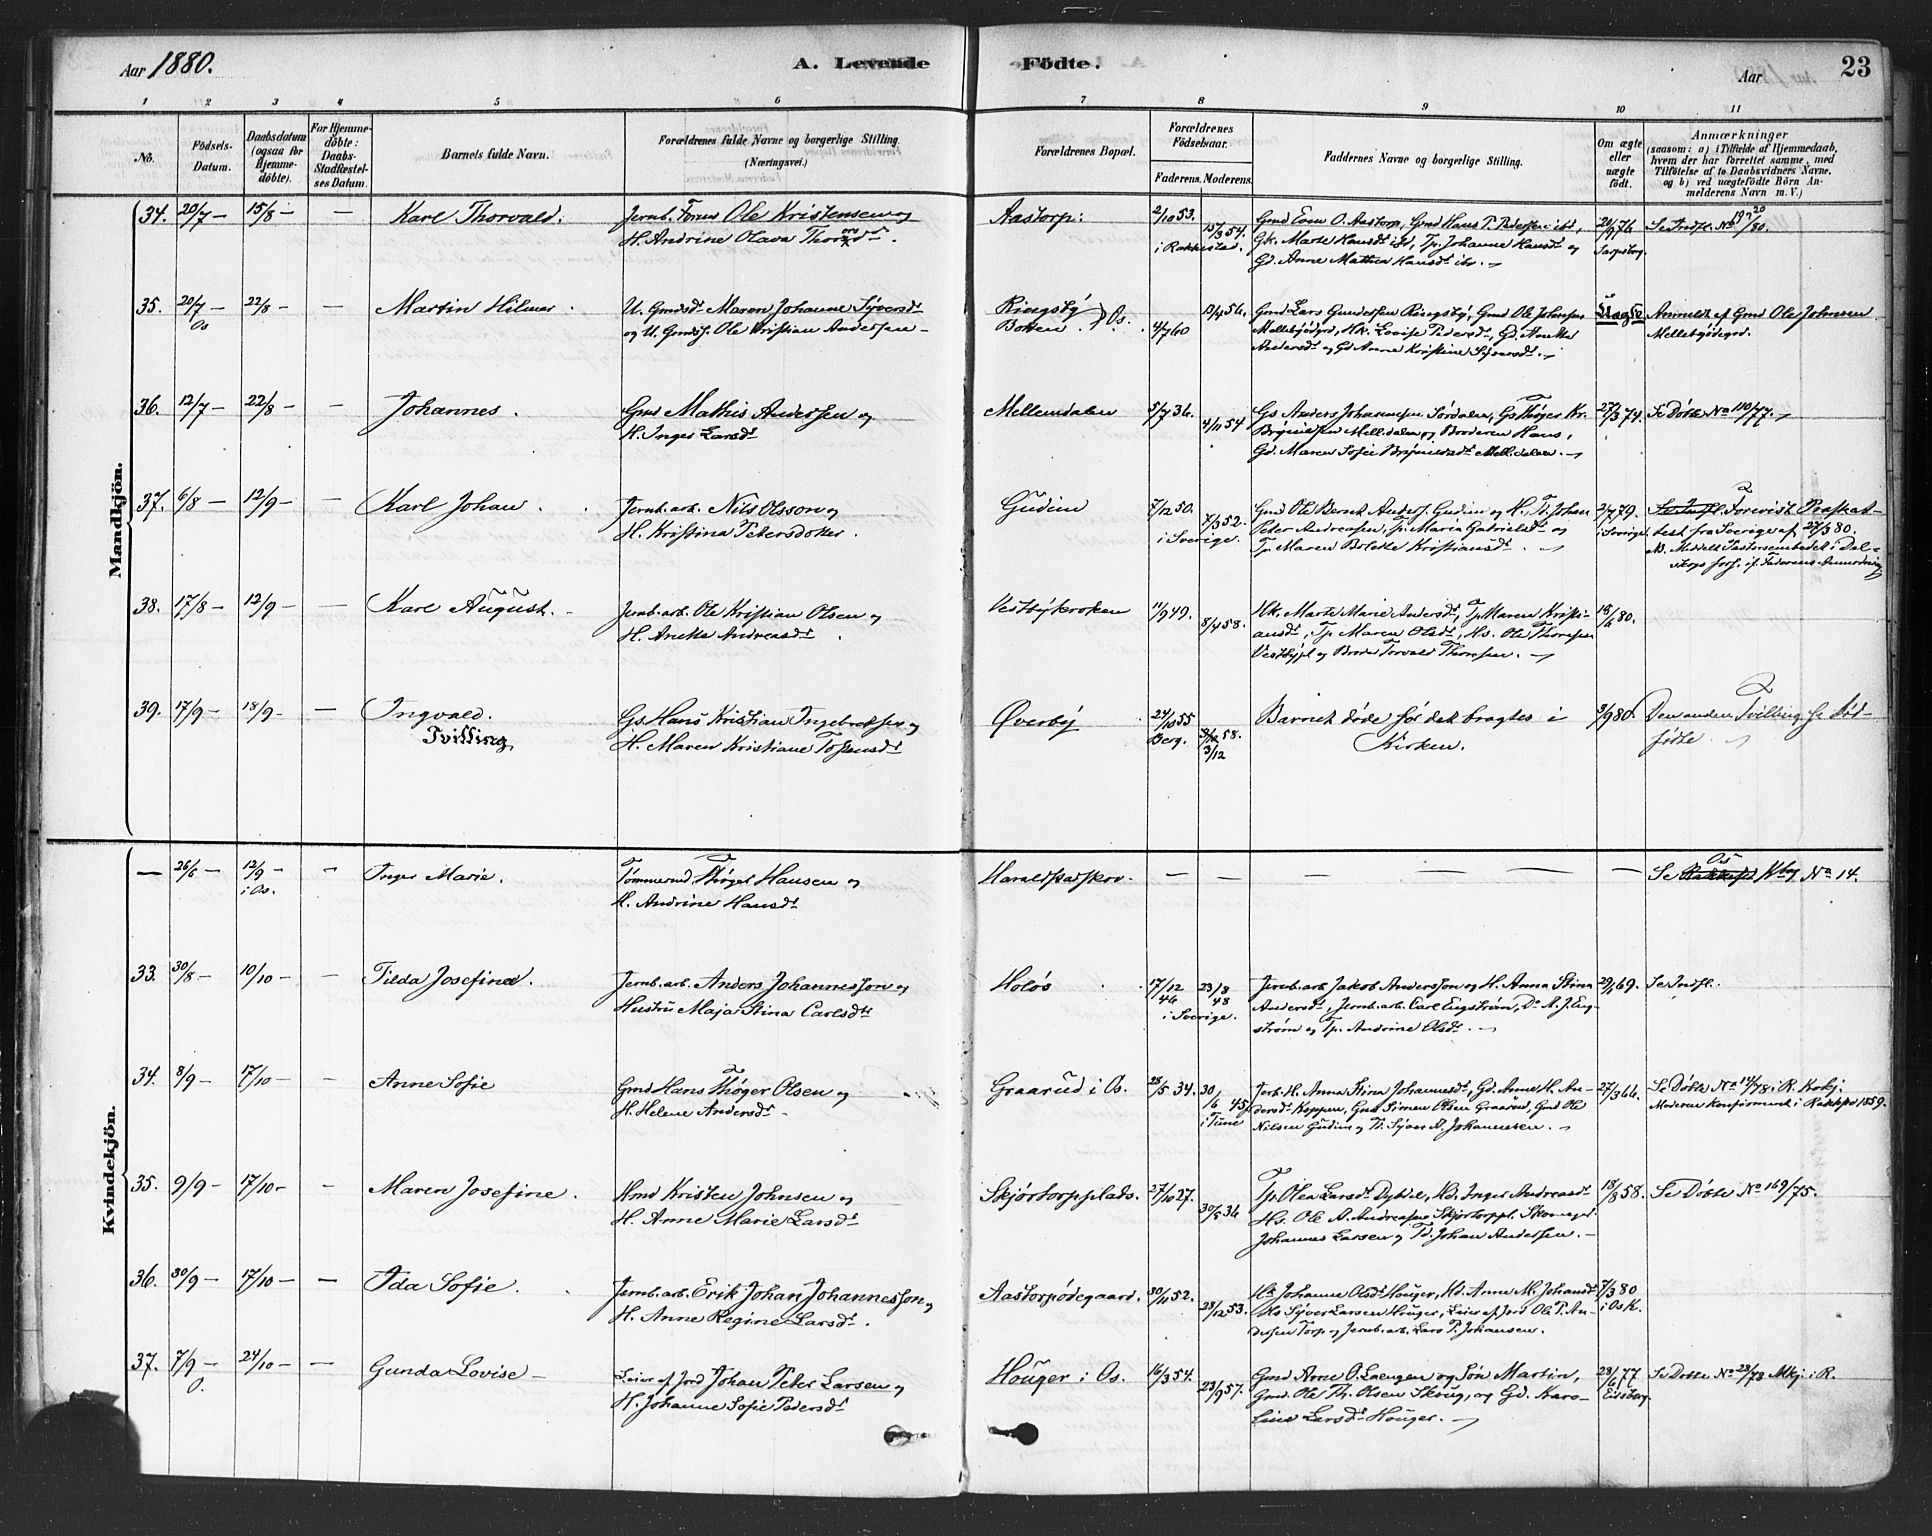 Aar 1880.
A. Levende Födte.
Aar 23
1 2 3 4 5 6 7 8 9 10 11
No.
Födsels-Datum.
Daabsdatum (ogsaa for Hjemme-döbte).
For Hjemme-döbte: Daabs-Stadfæstel-ses Datum.
Barnets fulde Navn.
Forældrenes fulde Navne og borgerlige Stilling. (Næringsvei.)
Forældrenes Bopæl.
Forældrenes Födselsaar.
Faderens. Moderens.
Faddernes Navne og borgerlige Stilling.
Om ægte eller uægte födt.
Anmærkninger
(saasom: a) i Tilfælde af Hjemmedaab,
hvem der har forrettet samme, med
Tilföielse af to Daabsvidners Navne,
og b) ved uægtefödte Börn An-
melderens Navn m. V.)
Mandkjön.
34. 20/7 — 15/8 — — Karl Thorvald. Jernb. Ole Kristensen og
H. Andrine Olava
Aastorp: 2/10 53. i Rakkestad. 15/3 54.
Gmd Even O. Aastorp, Gmd Hans P. Pedersen ibd,
Gk. Marte Hansdt ibd, Tp. Johanne Hansdt og
Gd. Anne Mathea Hansdt ibd. 76 Sarpsborg.
35. 20/7 — Os 22/8 — — Martin Hilmar. U. Gmdsdt Maren Johanne Syversdt
og U. Gmdsf. Ole Kristian Andersen —
Ringsby
Botten. } Os. 4/7 60 56.
Gmd Lars Gundersen Ringsby, Gmd Ole Johnsen
Mellebyödegrd, Hk. Lovise Pedersdt, Gd. Anette
Andersdt og Gd Anne Kristine Syversdt.
Uægte Anmeldt af Gmd Ole Johnsen
Mellebyödegrd.
36. 12/7 — 22/8 — — Johannes. Gmd Mathis Andersen og
H. Inger Larsdt
Mellemdalen 5/7 36. 4/11 54
Gs Anders Johannesen Sördalen, Gs Thöger Kr.
og Broderen Hans,
Gd. Maren Sofie
27/3 74. Se Döbte No 110/77.
37. 6/8 — 12/9 — — Karl Johan. Jernb. arb. Nils Olsson og
H. Kristina Petersdotter.
Gudim 7/12 50. 7/3 52. i Sverige.
Gmd Ole Bernt Anders. Gudim og H., Johan
Peter Andreasen, Tp. Maria Gabrielsdt og
Tp. Maren Bolette Kristiansdt.
2/7 79. i Sverige.
Se Indfl. Forevist
test fra Sverige af 27/3 80.
38. 17/8 — 12/9 — — Karl August. Jernb. arb. Ole Kristian Olsen og
H. Anette Andreasdt.
Vestbykroken 11/9 49. 8/4 58.
Hk. Marte Marie Andersdt, Tp. Maren Kristi-
ansdt, Tp. Maren Olsdt, Hs. Ole Thoresen
Vestbypl og Broder Torvald Thoresen.
16/6 80.
39. 17/9 — 18/9 — — Ingvald.
Tvilling Gs. Hans Kristian Ingebretsen og
H. Maren Kristiane
Øverby 24/10 55 Berg. 58. 3/12
Barnet döde för det bragtes i
Kirken.
80. Den anden Tvilling se död-
födte.
Kvindekjön.
— 26/6 — 12/9 — i Os. — Inger Marie. Tömmermd Thöger Hansen og
H. Andrine Hansdt
— — — — — — — Se Os Kbog No 14.
33. 30/8 — 10/10 — — Tilda Josefine. Jernb. arb. Anders Johannesson og
Hustru Maja Stina Carlsdtr
Holös 17/12 46 23/8 48 i Sverige.
Jernb. arb. Jakob Andersson og H. Anna Stina
Andersdt, Jernb. arb. Carl Engström, Do A. J. Eng-
ström og Tp. Andrine Olsdt.
69. Se Indfl.
34. 8/9 — 17/10 — — Anne Sofie Gmd Hans Thöger Olsen og
H. Helene Andersdt.
Graarud i Os. 28/5 34. 30/6 45 i Tune
Jerb. H. Anna Stina Johannesdt, Gd. Anne H. An-
dersdt Koppen, Gmd Simen Olsen Graarud, Gmd Ole
Nilsen Gudim og Johannesen.
27/3 66. Se Döbte i R.
Moderen konfirmeret i 1859.
35. 9/9 — 17/10 — — Maren Josefine. Hmd Kristen Johnsen og
H. Anne Marie Larsdt
Skjörtorpplads. 27/10 27. 30/5 36
Tp. Olea Larsdt Dybdal, Hd. Inger Andreasdt
Hs. Ole A. Andreasen Skjörtorppl. Skomager
Johannes Larsen og Johan Andersen. —
18/8 58. Se Döbte No 169/75.
36. 30/9 — 17/10 — — Ida Sofie. Jernb. arb. Erik Johan Johannesson og
H. Anne Regine Larsdt.
Aastorpödegaard. 30/11 52. 28/12 53.
Johanne Olsdt Houger, Hd. Anne M. Johansdt
Hs. Syver Larsen Houger, Leier af Jord Ole P. An-
dersen Torp og Jernb. arb. Lars P. Johansen.
7/3 80 i Os K.
37. 7/9 — O. 24/10 — — Gunda Lovise — Leier af Jord Johan Peter Larsen og
H. Johanne Sofie Pedersdt
Houger i Os. 16/3 54. 23/9 57.
Gmd Arne O. Laengen og Sön Martin,
Gmd. Ole Th. Olsen Skoug, og Gd. Karo-
line Larsdt Houger.
28/6 77 Eidsberg.
Se Döbte No 28/78 Mkj. i R.